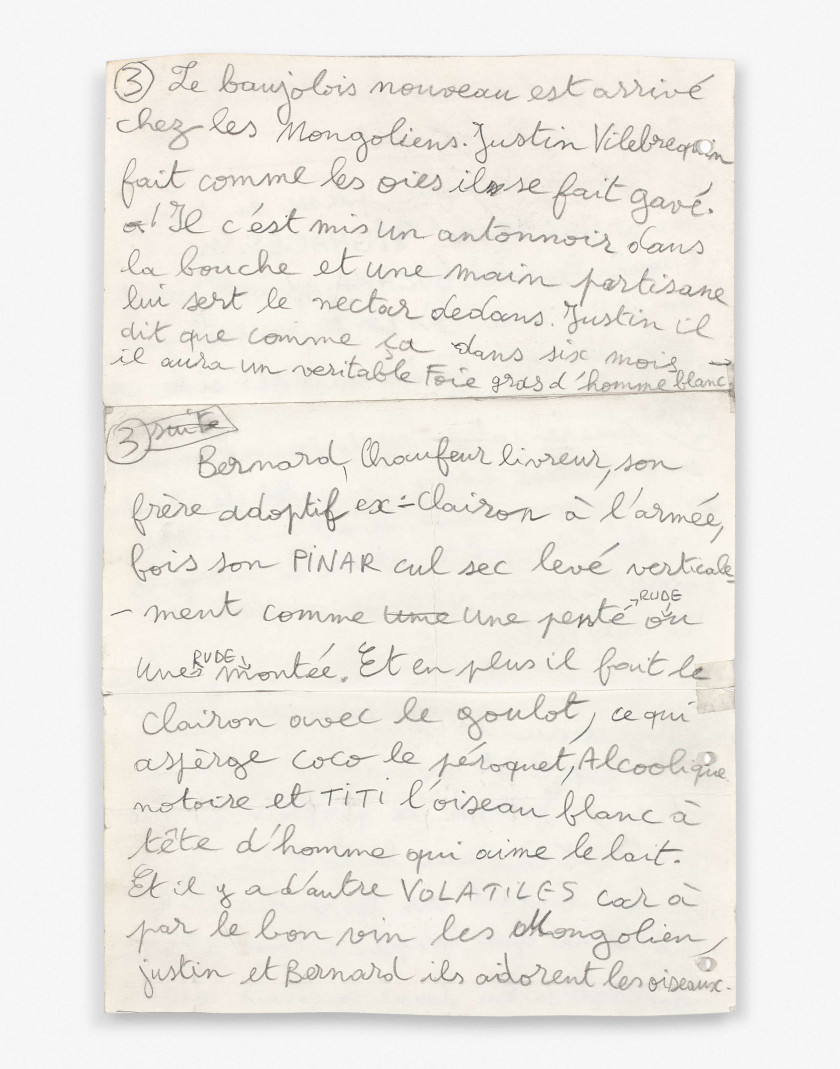 3 Le baujolois nouveau est arrivé
chez les Mongoliens. Justin Vilebrequin
fait comme les oies il se fait gavé.
Il c'est mis un antonnoir dans
la bouche et une main partisane
lui sert le nectar dedans. Justin il
dit que comme ça dans six mois →
il aura un veritable Foie gras d'homme blanc.
3 suite
Bernard, Chaufeur livreur, son
frère adoptif ex-Clairon à l'armée,
bois son PiNAR cul sec levé verticale
- ment comme une une penté RUDE ou
une RUDE montée. Et en plus il fait le
clairon avec le goulot, ce qui
aspèrge coco le péroquet, Alcoolique
notoire et TiTi l'oiseau blanc à
tête d'homme qui aime le lait.
Et il y a d'autre VOLATILES car à
par le bon vin les Mongolien,
justin et Bernard ils adorent les oiseaux.